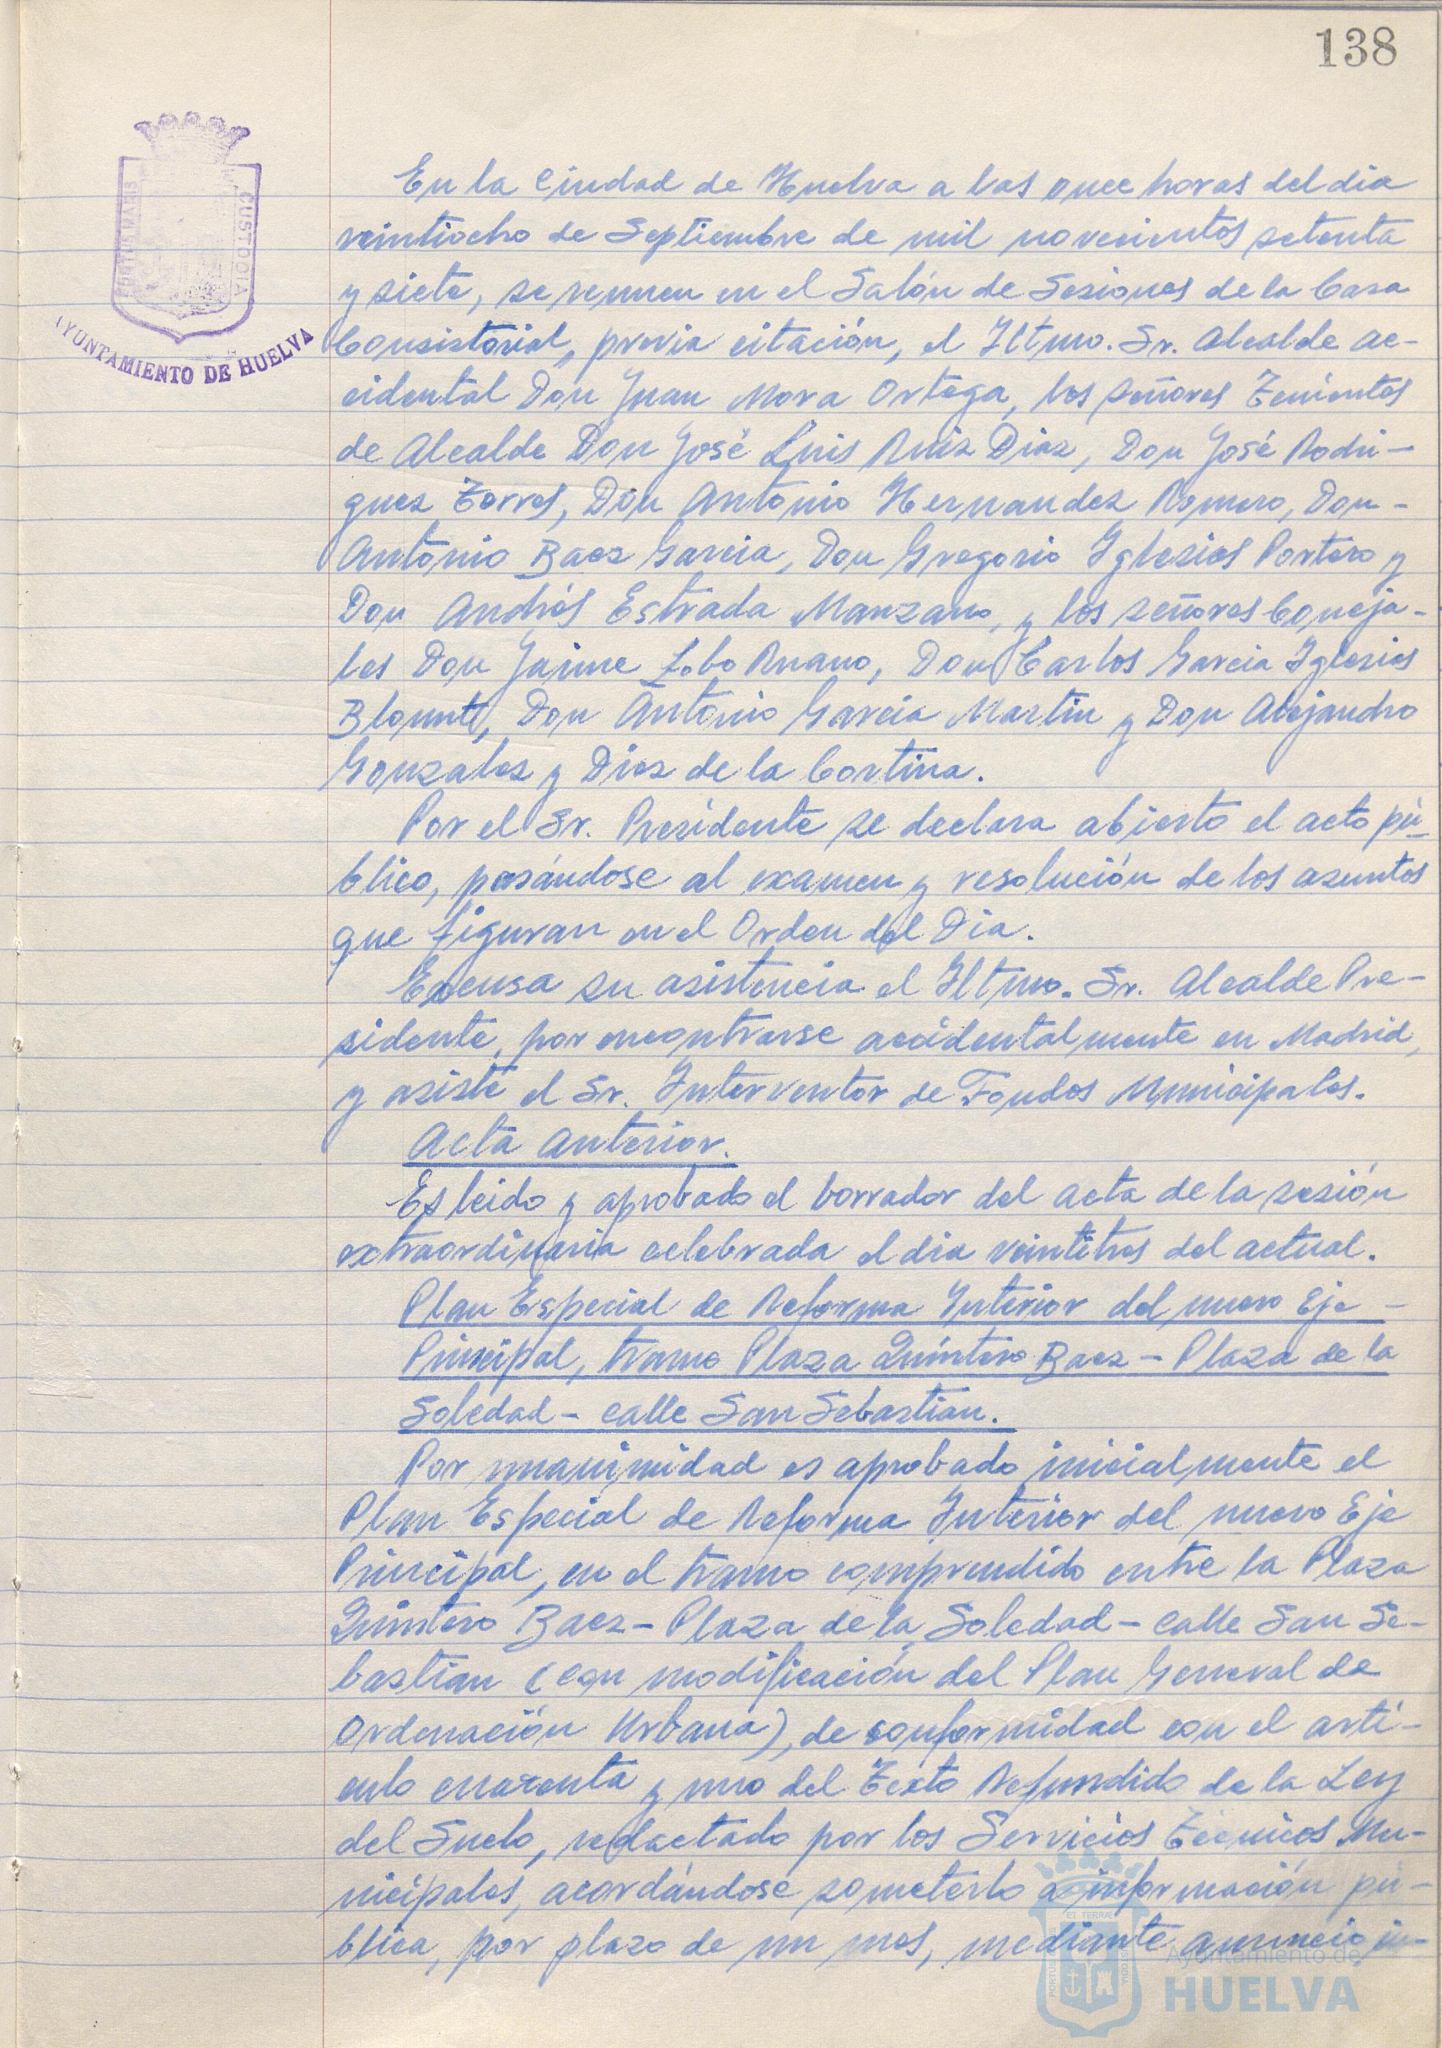 138
PORTUS MARIS
CUSTODIA
AYUNTAMIENTO DE HUELVA
En la Ciudad de Huelva a las once horas del dia
veintiocho de Septiembre de mil novecientos setenta
y siete, se reunen en el Salón de Sesiones de la Casa
Consistorial, previa citación, el Iltmo. Sr. Alcalde ac-
cidental Don Juan Mora Ortega, los señores Tenientes
de Alcalde Don José Luis Ruiz Diaz, Don José Rodri-
guez Torres, Don Antonio Hernandez Romero, Don-
Antonio Baez Garcia, Don Gregorio Iglesias Portero y
Don Andrés Estrada Manzano, y los señores Conceja-
les Don Jaime Lobo Ruano, Don Carlos Garcia Iglesias
Blount, Don Antonio Garcia Martin y Don Alejandro
Gonzalez y Diez de la Cortina.
Por el Sr. Presidente se declara abierto el acto pú-
blico, pasándose al examen y resolución de los asuntos
que figuran en el Orden del Dia.
Excusa su asistencia el Iltmo. Sr. Alcalde Pre-
sidente, por encontrarse accidentalmente en Madrid,
y asiste el Sr. Interventor de Fondos Municipales.
Acta anterior.
Es leido y aprobado el borrador del acta de la sesión
extraordinaria celebrada el dia veintitres del actual.
Plan Especial de Reforma Interior del nuevo Eje -
Principal, tramo Plaza Quintero Baez - Plaza de la
Soledad - calle San Sebastian.
Por unanimidad es aprobado inicialmente el
Plan Especial de Reforma Interior del nuevo Eje
Principal, en el tramo comprendido entre la Plaza
Quintero Baez - Plaza de la Soledad - calle San Se-
bastian (con modificación del Plan General de
Ordenación Urbana), de conformidad con el artí-
culo cuarenta y uno del Texto Refundido de la Ley
del Suelo, redactado por los Servicios Técnicos Mu-
nicipales, acordándose someterlo a información pú-
blica, por plazo de un mes, mediante anuncio in-
Ayuntamiento de
HUELVA